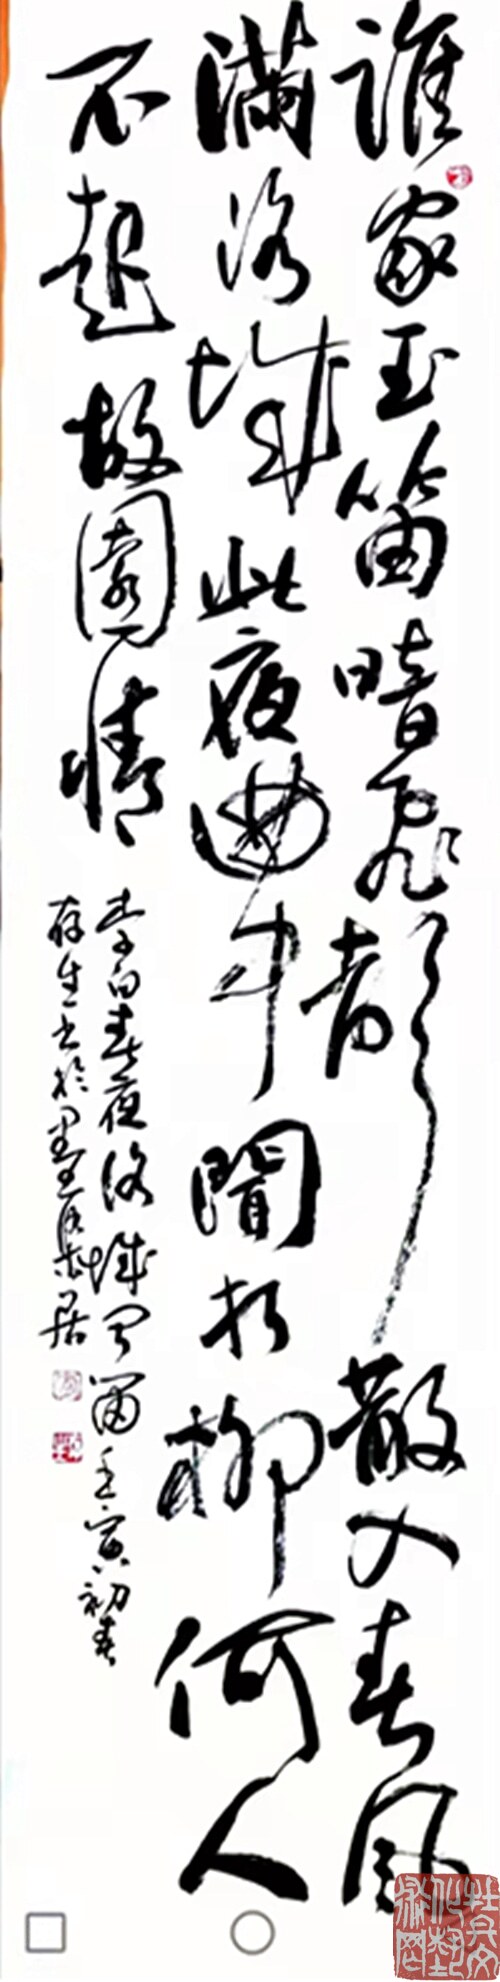 誰家玉笛暗飛聲散入春風
滿洛城此夜曲中聞折柳何人
不起故園情
李白春夜洛城聞笛壬寅初春
存生书於墨居